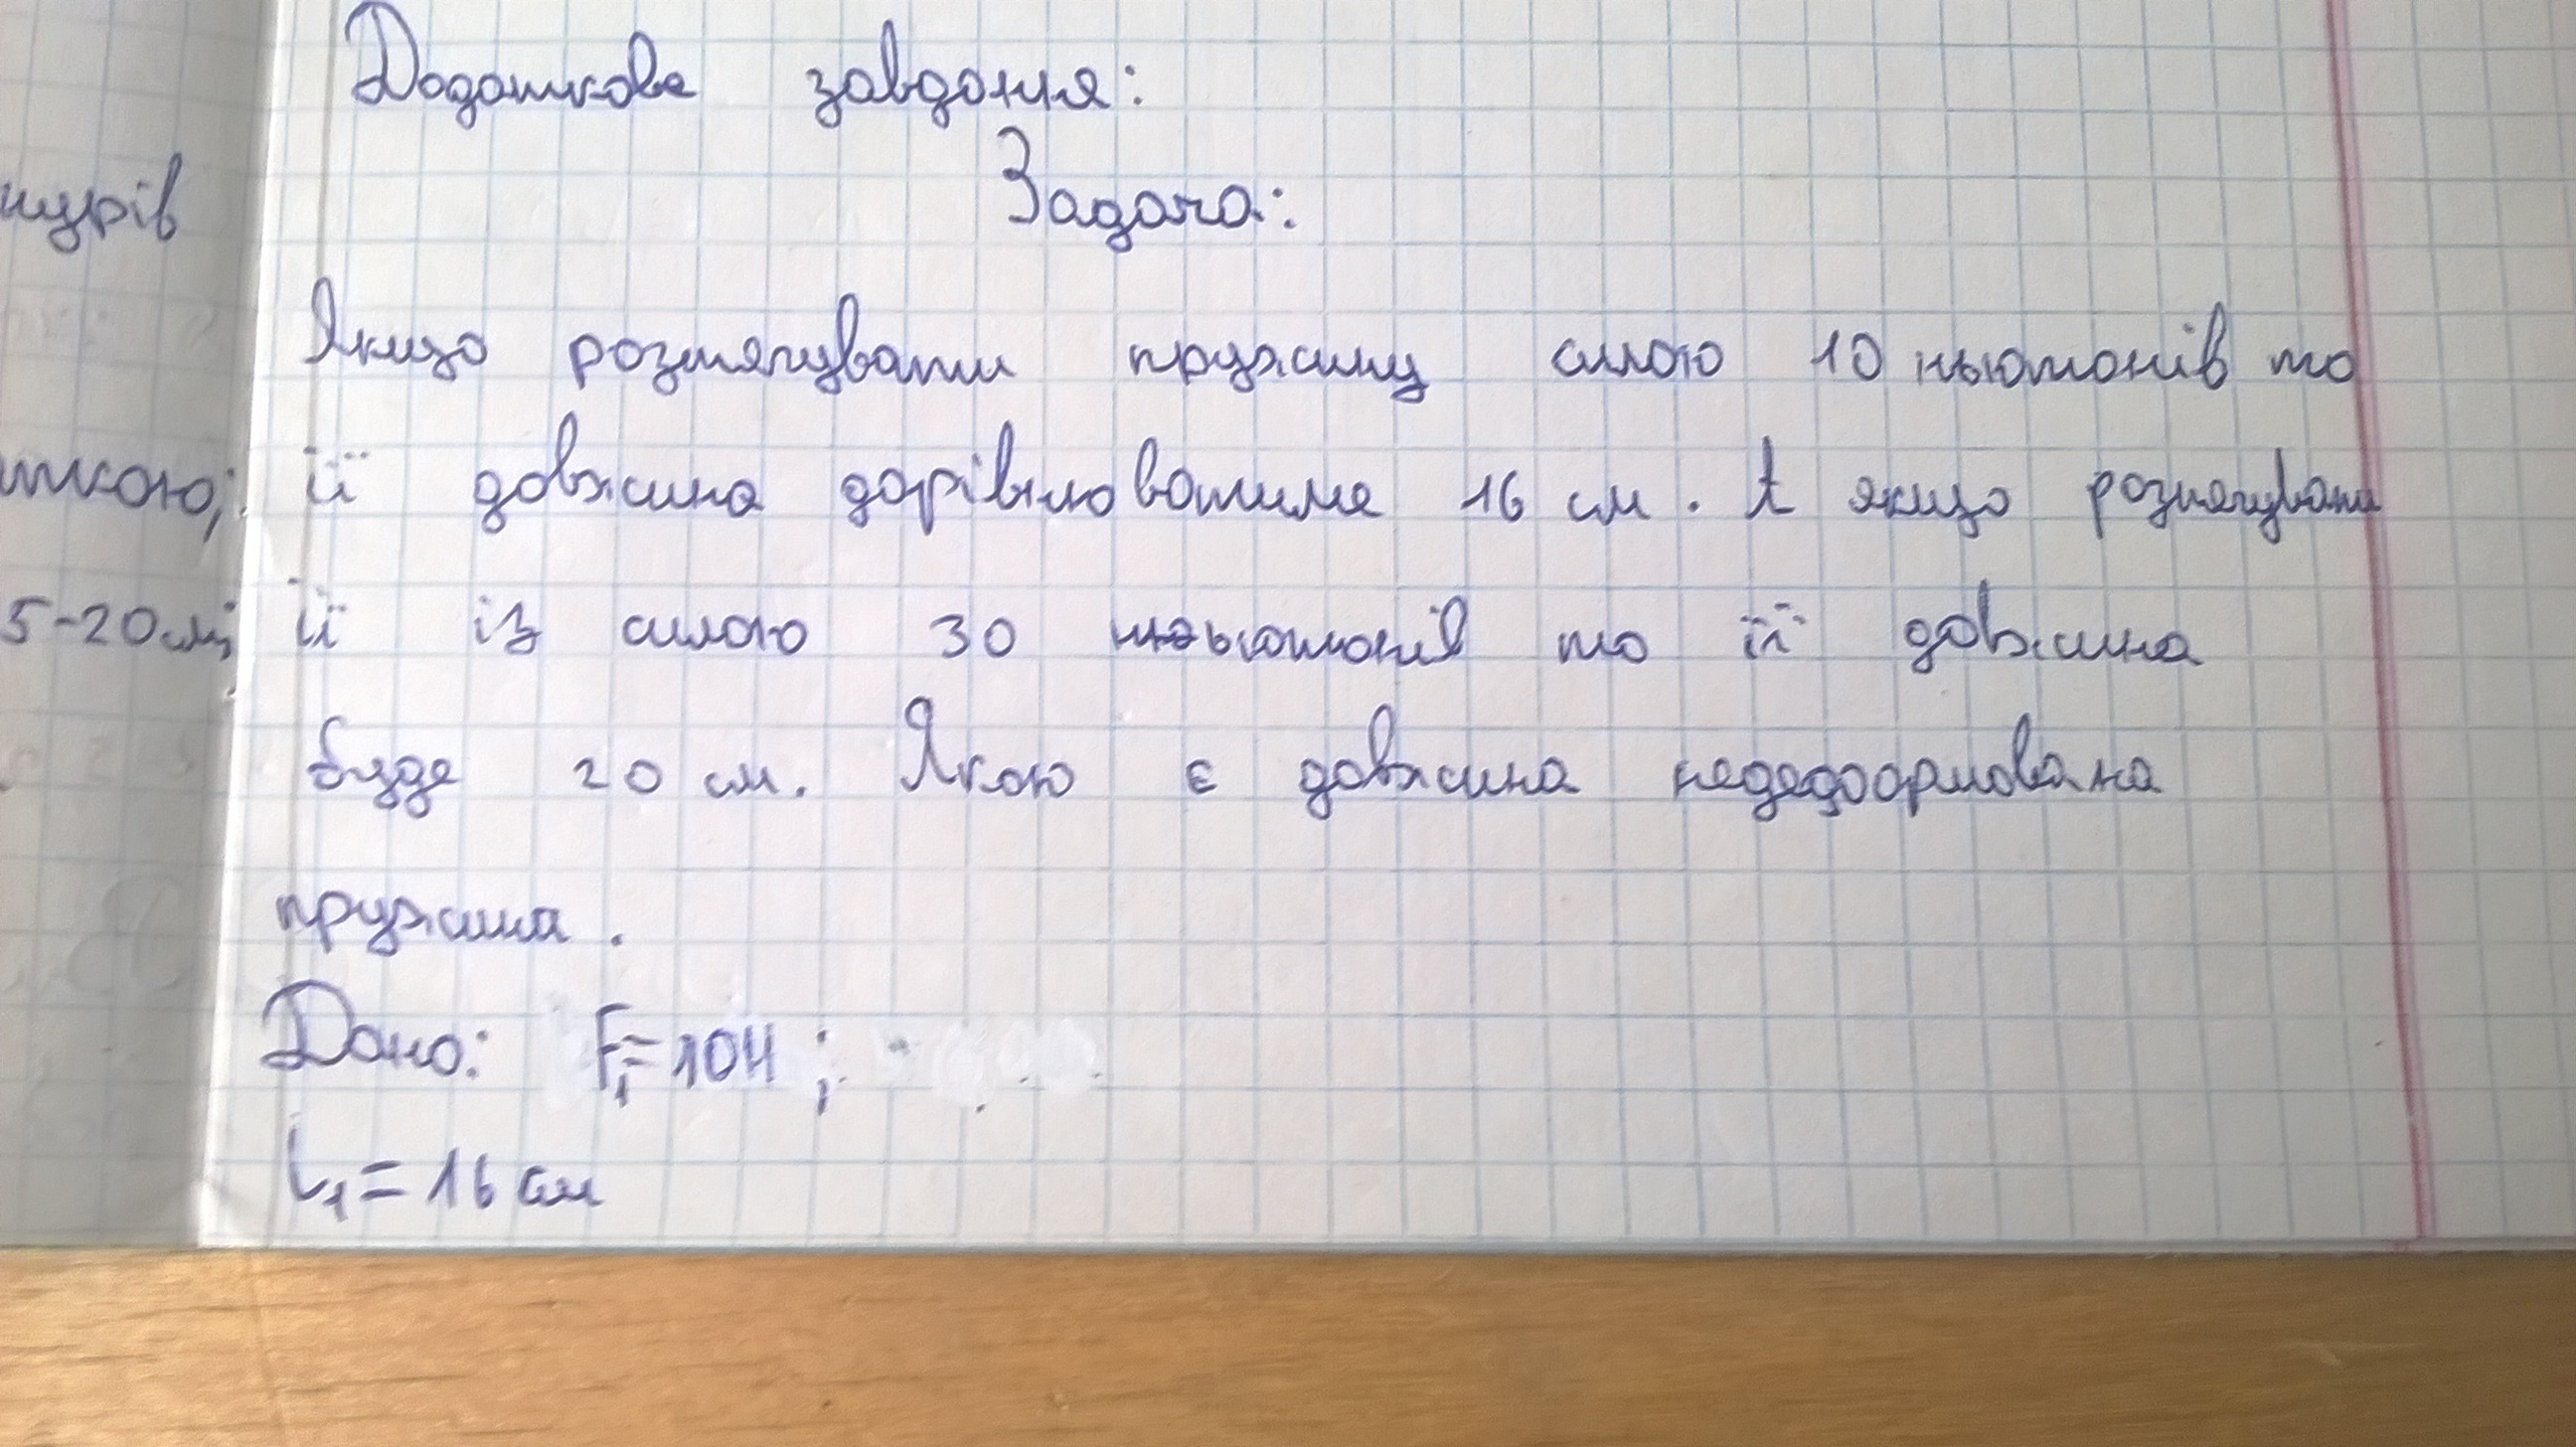 Додаткове завдання:
Задача:
Якщо розтягувати пружину силою 10 ньютонів то
її довжина дорівнюватиме 16 см. А якщо розтягувати
її із силою 30 ньютонів то її довжина
буде 20 см. Якою є довжина недеформована
пружина.
Дано: F₁=10Н;
L₁=16 см
нурів
ткою;
5-20см;